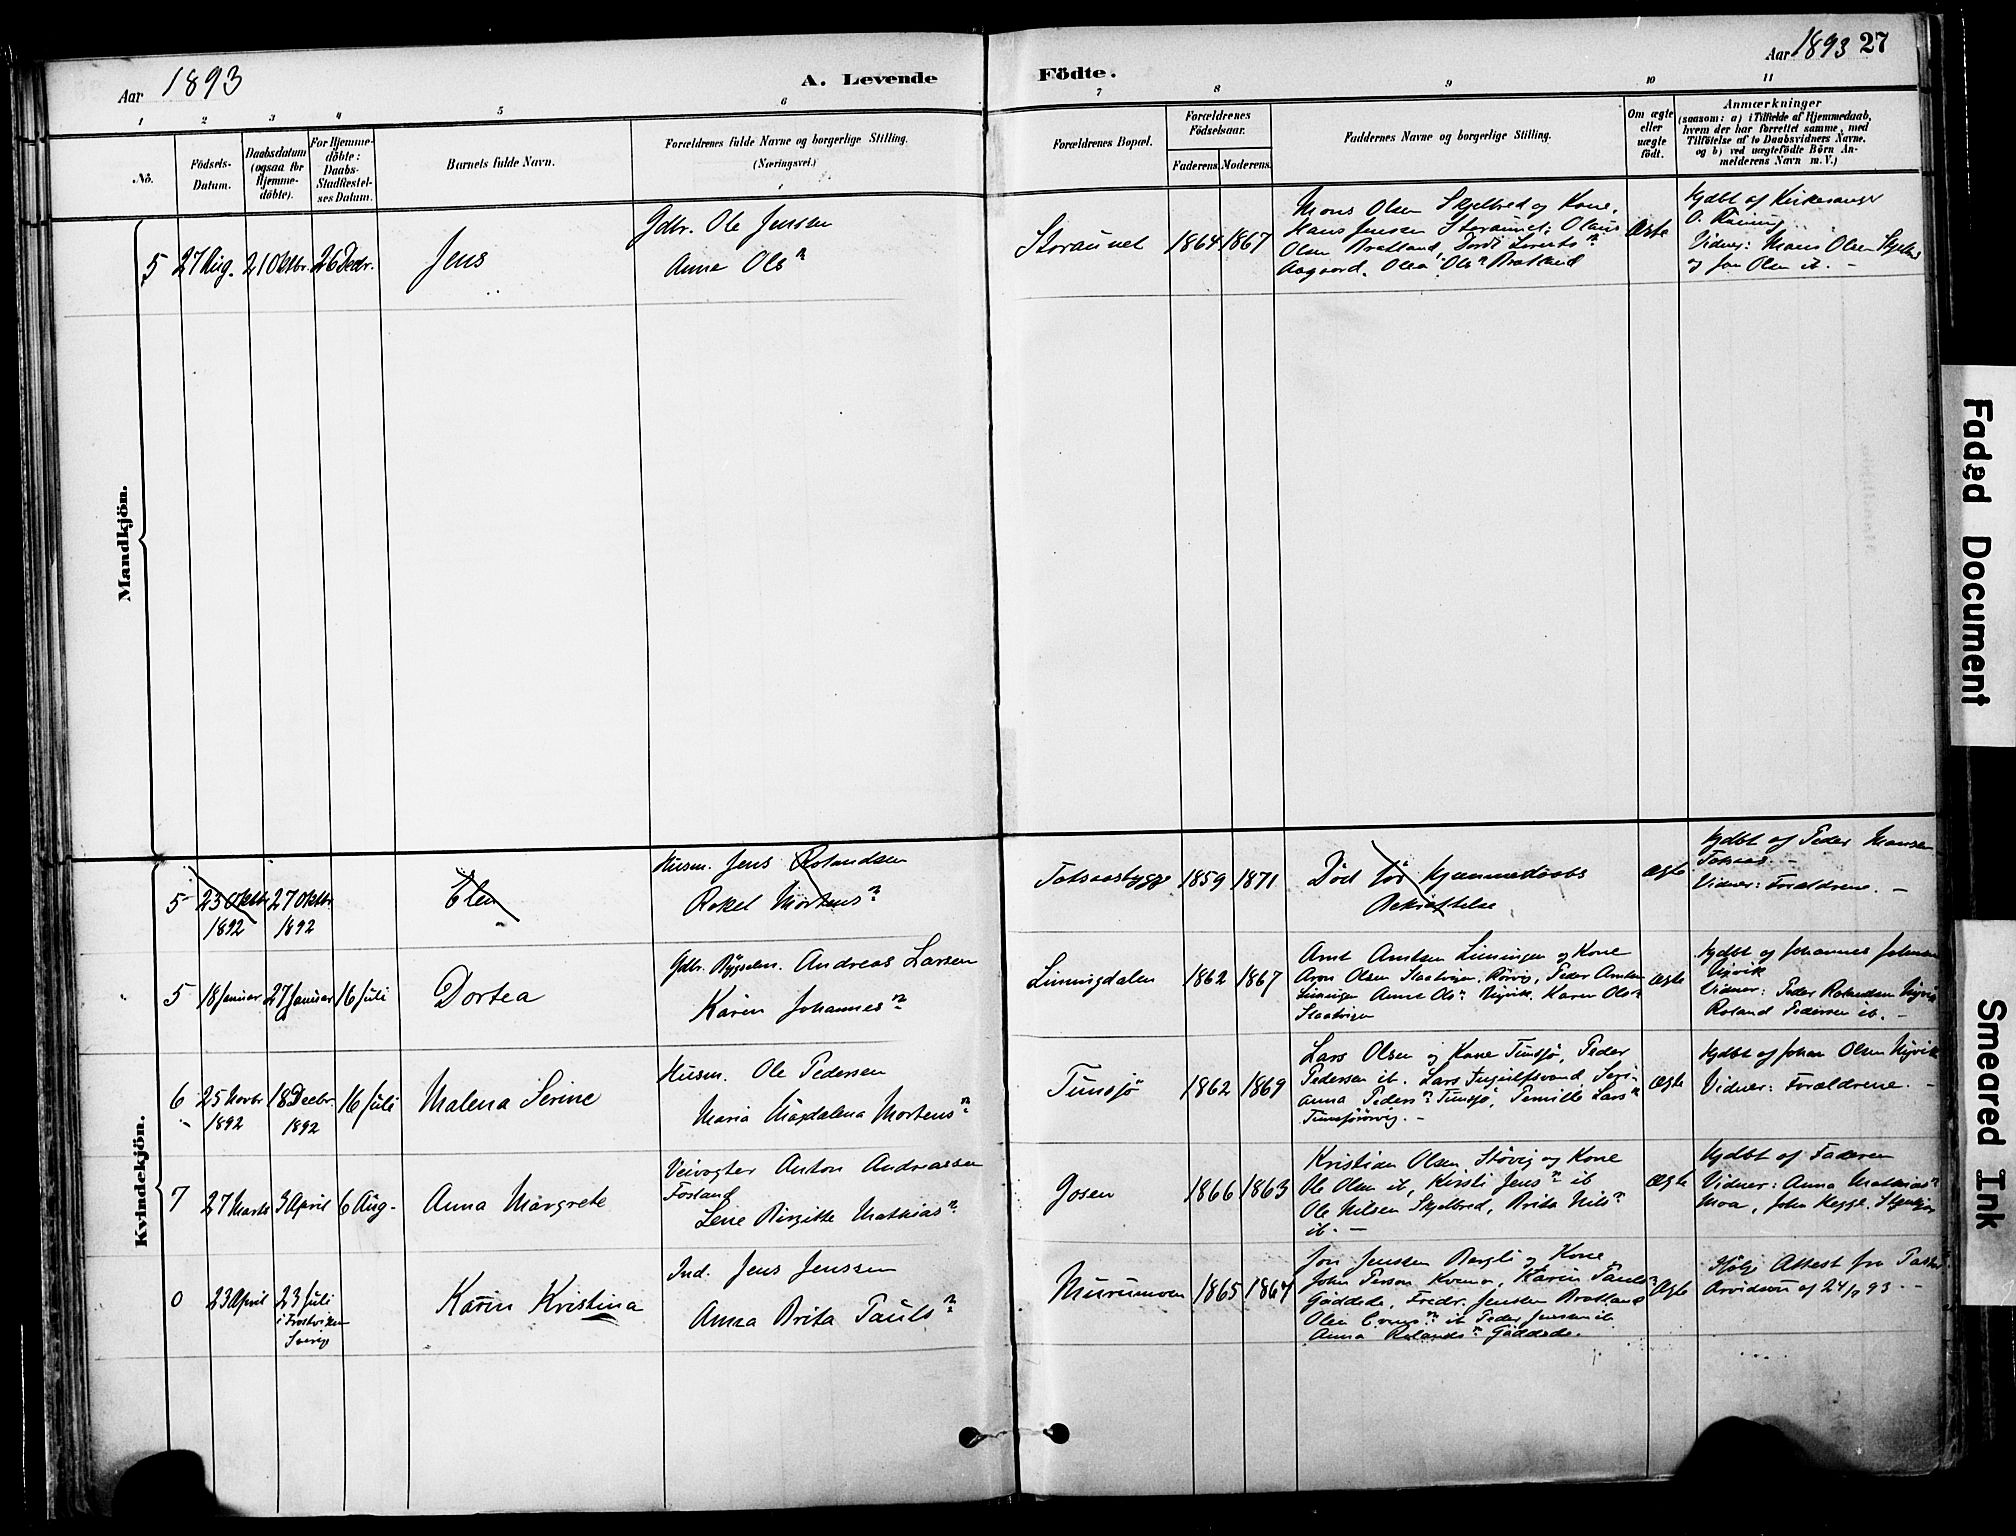 Aar 1893
A. Levende
Födte.
Aar 1893 27
1 2 3 4 5 6 7 8 9 10 11
No.
Födsels-
Datum.
Daabsdatum
(ogsaa for
Hjemme-
döbte).
For Hjemme-
döbte:
Daabs-
Stadfæstel-
ses Datum.
Barnets fulde Navn.
Forældrenes fulde Navne og borgerlige Stilling.
(Næringsvei.)
Forældrenes Bopæl.
Forældrenes
Födselsaar.
Faderens. Moderens.
Faddernes Navne og borgerlige Stilling.
Om ægte
eller
uægte
födt.
Anmærkninger
(saasom: a) i Tilfælde af Hjemmedaab,
hvem der har forrettet samme, med
Tilföielse af to Daabsvidners Navne.
og b) ved uægtefödte Börn An-
melderens Navn m. V.)
Mandkjön.
5 27 Aug. 2 Oktbr. 26 Decbr.
Jens
Gdbr. Ole Jenssen
Anna Olsn
Storaunet 1864 1867
Mons Olsen Skjelbred og Kone,
Hans Jensen Storaunet, Olaus
Olsen Bratland, Tordi Siverts n
Aagaard, Olea Ols n Bratland
Ægte
Hjdbt af Kirkesanger
O.
Vidner: Mons Olsen
og Jon Olsen ib. –
Kvindekjön.
5 23 Oktbr. 27 Oktbr.
1892 1892
Elen
Husm. Jens Rolandsen
Rakel Mortens n
Totsaasbygge 1859 1871
Död før Hjemmedaabs
Bekræftelse
Ægte
Hjdbt af Peder Monsen
Totsaas. –
Vidner: Forældrene. –
5 18 Januar 27 Januar 16 Juli
Dortea
Gdbr. Andreas Larsen
Karen Johannes n
Limingdalen 1862 1867
Arnt Arntsen Limingen og Kone
Aron Olsen Rörvig, Peder Arntsen
Limingen Anna Ols n Nyvik, Karen Ols n
Ægte
Hjdbt af Johannes Johnsen
Nyvik
Vidner: Peder Rolandsen Nyvik
Roland Pedersen ib. –
6 25 Novbr. 18 Decbr. 16 Juli
1892 1892
Malena Serine
Husm. Ole Pedersen
Maria Magdalena Mortens n
Tunsjø 1862 1869
Lars Olsen og Kone Tunsjø, Peder
Pedersen ib. Lars Ingulfsvand, Seri-
anna Peders n Tunsjø, Pernille Lars n
Tunsjørørvig. –
Ægte
Hjdbt af Johan Olsen Nyvik
Vidner: Forældrene. –
7 27 Marts 3 April 6 Aug.
Anna Margrete
Veivogter Anton Andreassen
Fosland
Lene Birgitte Mathias n
Gosen 1866 1863
Kristian Olsen Støvig og Kone
Ole Olsen ib, Kirsti Jens n ib
Ole Nilsen Skjelbred, Brita Nils n
ib. –
Ægte
Hjdbt af Faderen
Vidner: Anna Mathias n
Moa, John
0 23 April 23 Juli
i Frostviken
Sverig
Karin Kristina
Ind. Jens Jenssen
Anna Brita Pauls n
Murumoen 1865 1867
Jon Jenssen Bergli og Kone
John Person Kvena, Karin Pauls n
Gäddede, Fredr. Jenssen Bratland
Peder Jenssen ib
Anna Rolands n Gäddede.
Ægte
Ifølge Attest fra Pastor
Arvidson af 24/7 93. –
Faded Document
Smeared Ink